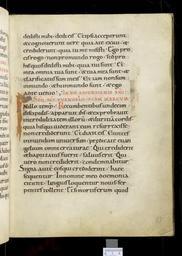 dedisti mihi dedi eis. Et ipsi acceperunt
& cognouerunt uere quia a te exiui. &
crediderunt quia tu me misisti. Ego pro
eis rogo. non pro mundo rogo. sed pro
his quos dedisti mihi. quia tui sunt. Et
mea omnia tua sunt. & tua mea sunt. &
clarificatus sum in eis. & iam non sum in
mundo. & hi in mundo sunt. & ego
ad te uenio.
Recumbentibus undecim
discipulis apparuit &exprobrauit
incredulitatem illorum & duritiam cordis
quia his qui uiderant eum resurrexisse non
crediderunt. Et dixit eis. Euntes in
mundum uniuersum. predicate euan
gelium omni creature. Qui crediderit
& baptizatus fuerit saluus erit. Qui
uero non crediderit condemnabitur.
Signa autem eos qui crediderint haec
sequentur. In nomine meo demonia
eicient. linguis loquentur nouis. ser
pentes tollent. Et si mortiferum quid